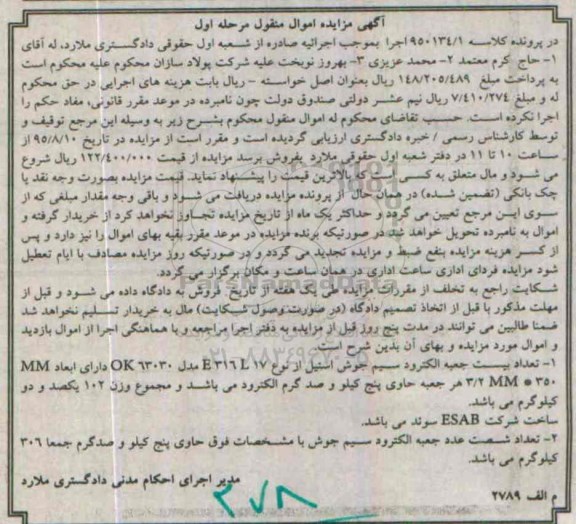 آگهی مزایده اموال منقول مرحله اول
در پرونده کلاسه ۹۵۰۱۳۴/۱ اجرا بموجب اجرائیه صادره از شعبه اول حقوقی دادگستری ملارد، له آقای
۱- حاج کرم معتمد ۲- محمد عزیزی ۳- بهروز نوبخت علیه شرکت پولاد سازان محکوم علیه محکوم است
به پرداخت مبلغ ۱۴۸/۲۰۵/۴۸۹ ریال بعنوان اصل خواسته - ریال بابت هزینه های اجرایی در حق محکوم
له و مبلغ ۷/۴۱۰/۲۷۴ ریال نیم عشر دولتی صندوق دولت چون نامبرده در موعد مقرر قانونی، مفاد حکم را
اجرا نکرده است. حسب تقاضای محکوم له اموال منقول محکوم بشرح زیر به وسیله این مرجع توقیف و
توسط کارشناس رسمی / خبره دادگستری ارزیابی گردیده است و مقرر است از مزایده در تاریخ ۹۵/۸/۱۰ از
ساعت ۱۰ تا ۱۱ در دفتر شعبه اول حقوقی ملارد بفروش برسد مزایده از قیمت ۱۲۲/۴۰۰/۰۰۰ ریال شروع
می شود و مال متعلق به کسی است که بالاترین قیمت را پیشنهاد نماید. قیمت مزایده بصورت وجه نقد یا
چک بانکی (تضمین شده) در همان حال از برنده مزایده دریافت می شود و باقی وجه مقدار مبلغی که از
سوی این مرجع تعیین می گردد و حداکثر یک ماه از تاریخ مزایده تجاوز نخواهد کرد از خریدار گرفته و
اموال به نامبرده تحویل خواهد شد در صورتیکه برنده مزایده در موعد مقرر بقیه بهای اموال را نپز دارد و پس
از کسر هزینه مزایده بنفع ضبط و مزایده تجدید می گردد و در صورتیکه روز مزایده مصادف با ایام تعطیل
شود مزایده فردای اداری ساعت اداری در همان ساعت و مکان برگزار می گردد.
شکایت راجع به تخلف از مقررات مزایده طی یک هفته از تاریخ فروش به دادگاه داده می شود و قبل از
مهلت مذکور یا قبل از اتخاذ تصمیم دادگاه (در صورت وصول شکایت) مال به خریدار تسلیم نخواهد شد
ضمنا طالبین می توانند در مدت پنج روز قبل از مزایده به دفتر اجرا مراجعه و با هماهنگی اجرا از اموال بازدید
و اموال مورد مزایده و بهای آن بدین شرح است.
۱- تعداد بیست جعبه الکترود سیم جوش استیل از نوع E ۳۱۶ L ۱۷ مدل OK ۶۳۰۳۰ دارای ابعاد MM
۳۵۰ * ۳/۲ MM هر جعبه حاوی پنج کیلو و صد گرم الکترود می باشد و مجموع وزن ۱۰۲ یکصد و دو
کیلوگرم می باشد.
ساخت شرکت ESAB سوئد می باشد.
۲- تعداد شصت عدد جعبه الکترود سیم جوش با مشخصات فوق حاوی پنج کیلو و صدگرم جمعا ۳۰۶
کیلوگرم می باشد.
مدیر اجرای احکام مدنی دادگستری ملارد
م الف ۲۷۸۹
۳۷۸